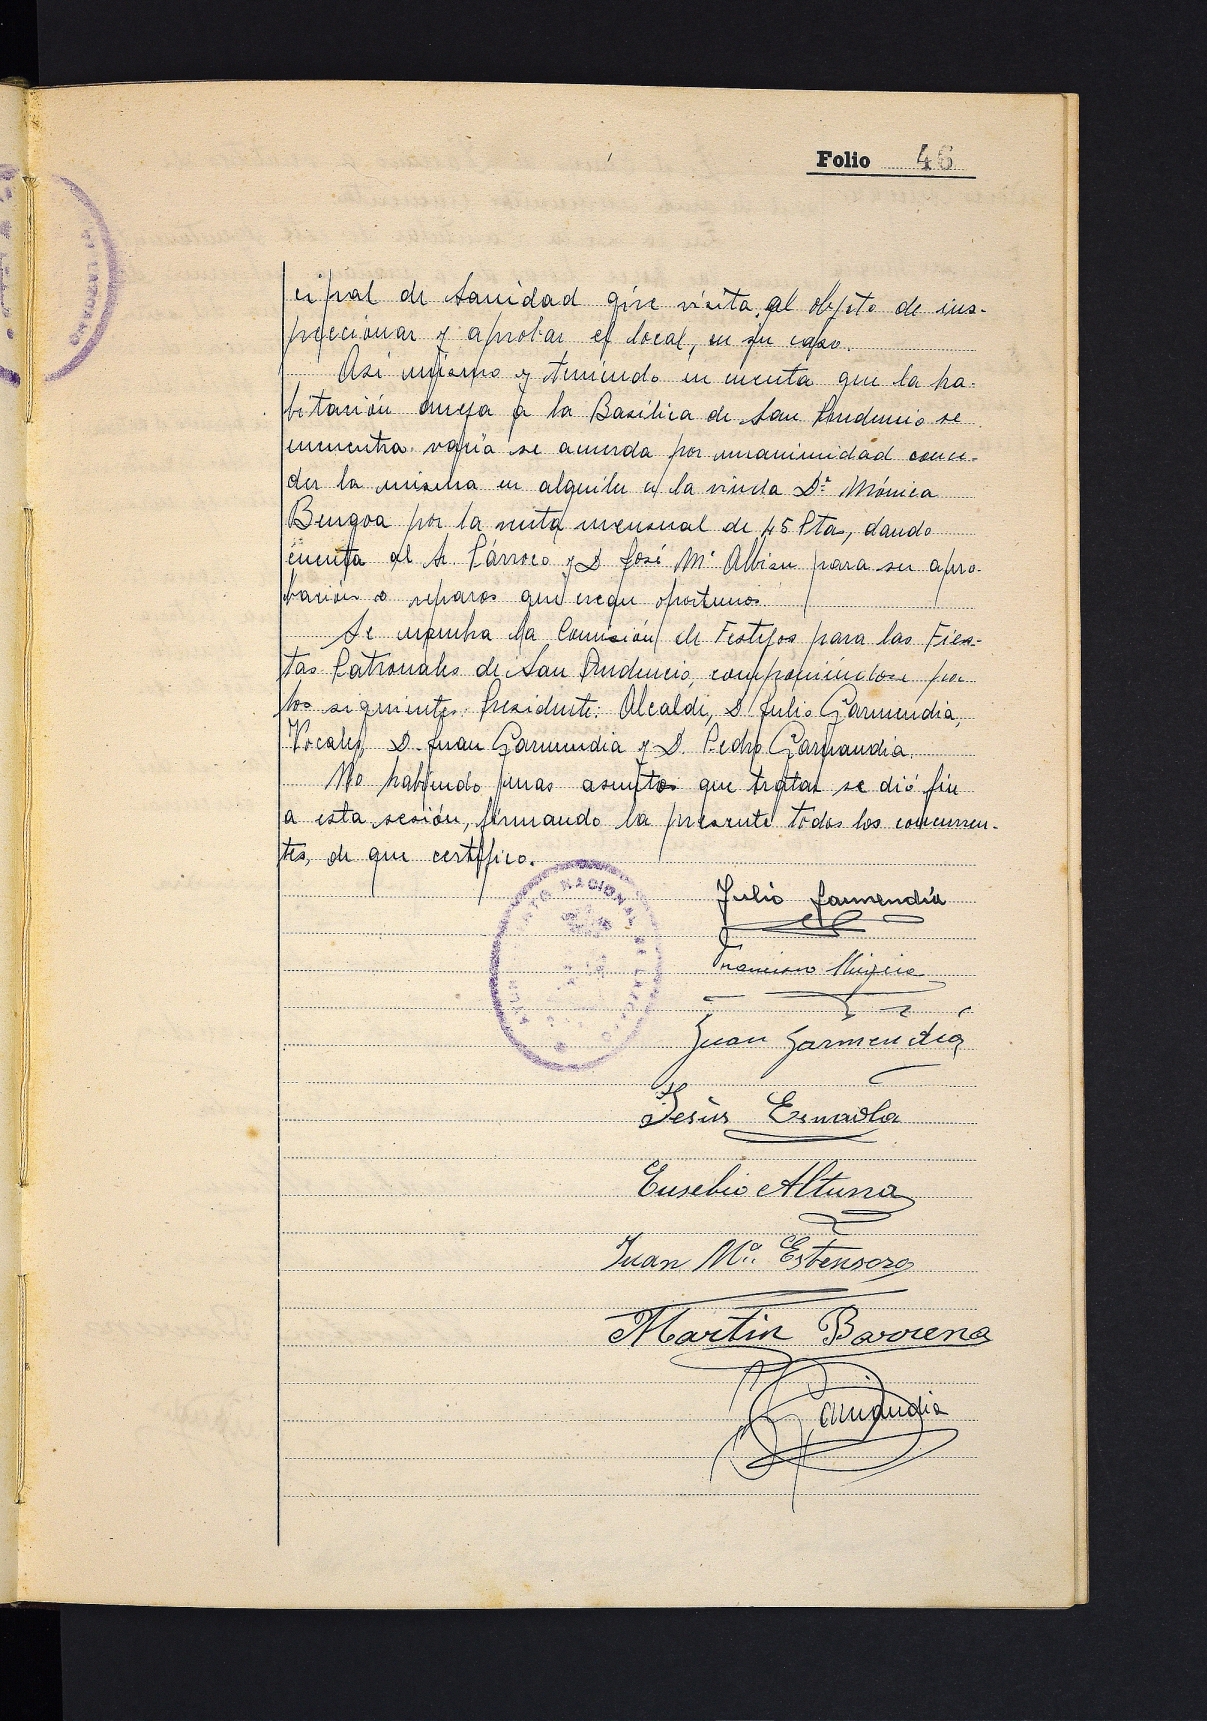 Folio 46
cipal de Sanidad gire visita, al objeto de ins-
peccionar y aprobar el local, en su caso.
Asi mismo y teniendo en cuenta que la ha-
bitación aneja a la Basílica de San Prudencio se
encuentra vacía se acuerda por unanimidad conce-
der la misma en alquiler a la viuda Dª Mónica
Bengoa por la renta mensual de 45 Ptas, dando
cuenta al Sr. Párroco y D José Mª Albisu para su apro-
bación o reparos que crean oportunos
Se nombra la Comisión de Festejos para las Fies-
tas Patronales de San Prudencio, componiéndose por
los siguientes: Presidente: Alcalde, D. Julio Garmendia,
Vocales, D. Juan Garmendia y D. Pedro Garmandia.
No habiendo mas asuntos que tratar se dió fin
a esta sesión, firmando la presente todos los concurren-
tes, de que certifico.
AYUNTAMIENTO NACIONAL DE LAZCANO
Julio Garmendia
Francisco
Juan Garmendia
Jesús
Eusebio Altuna
Juan Mª Estensoro
Martin Barrena